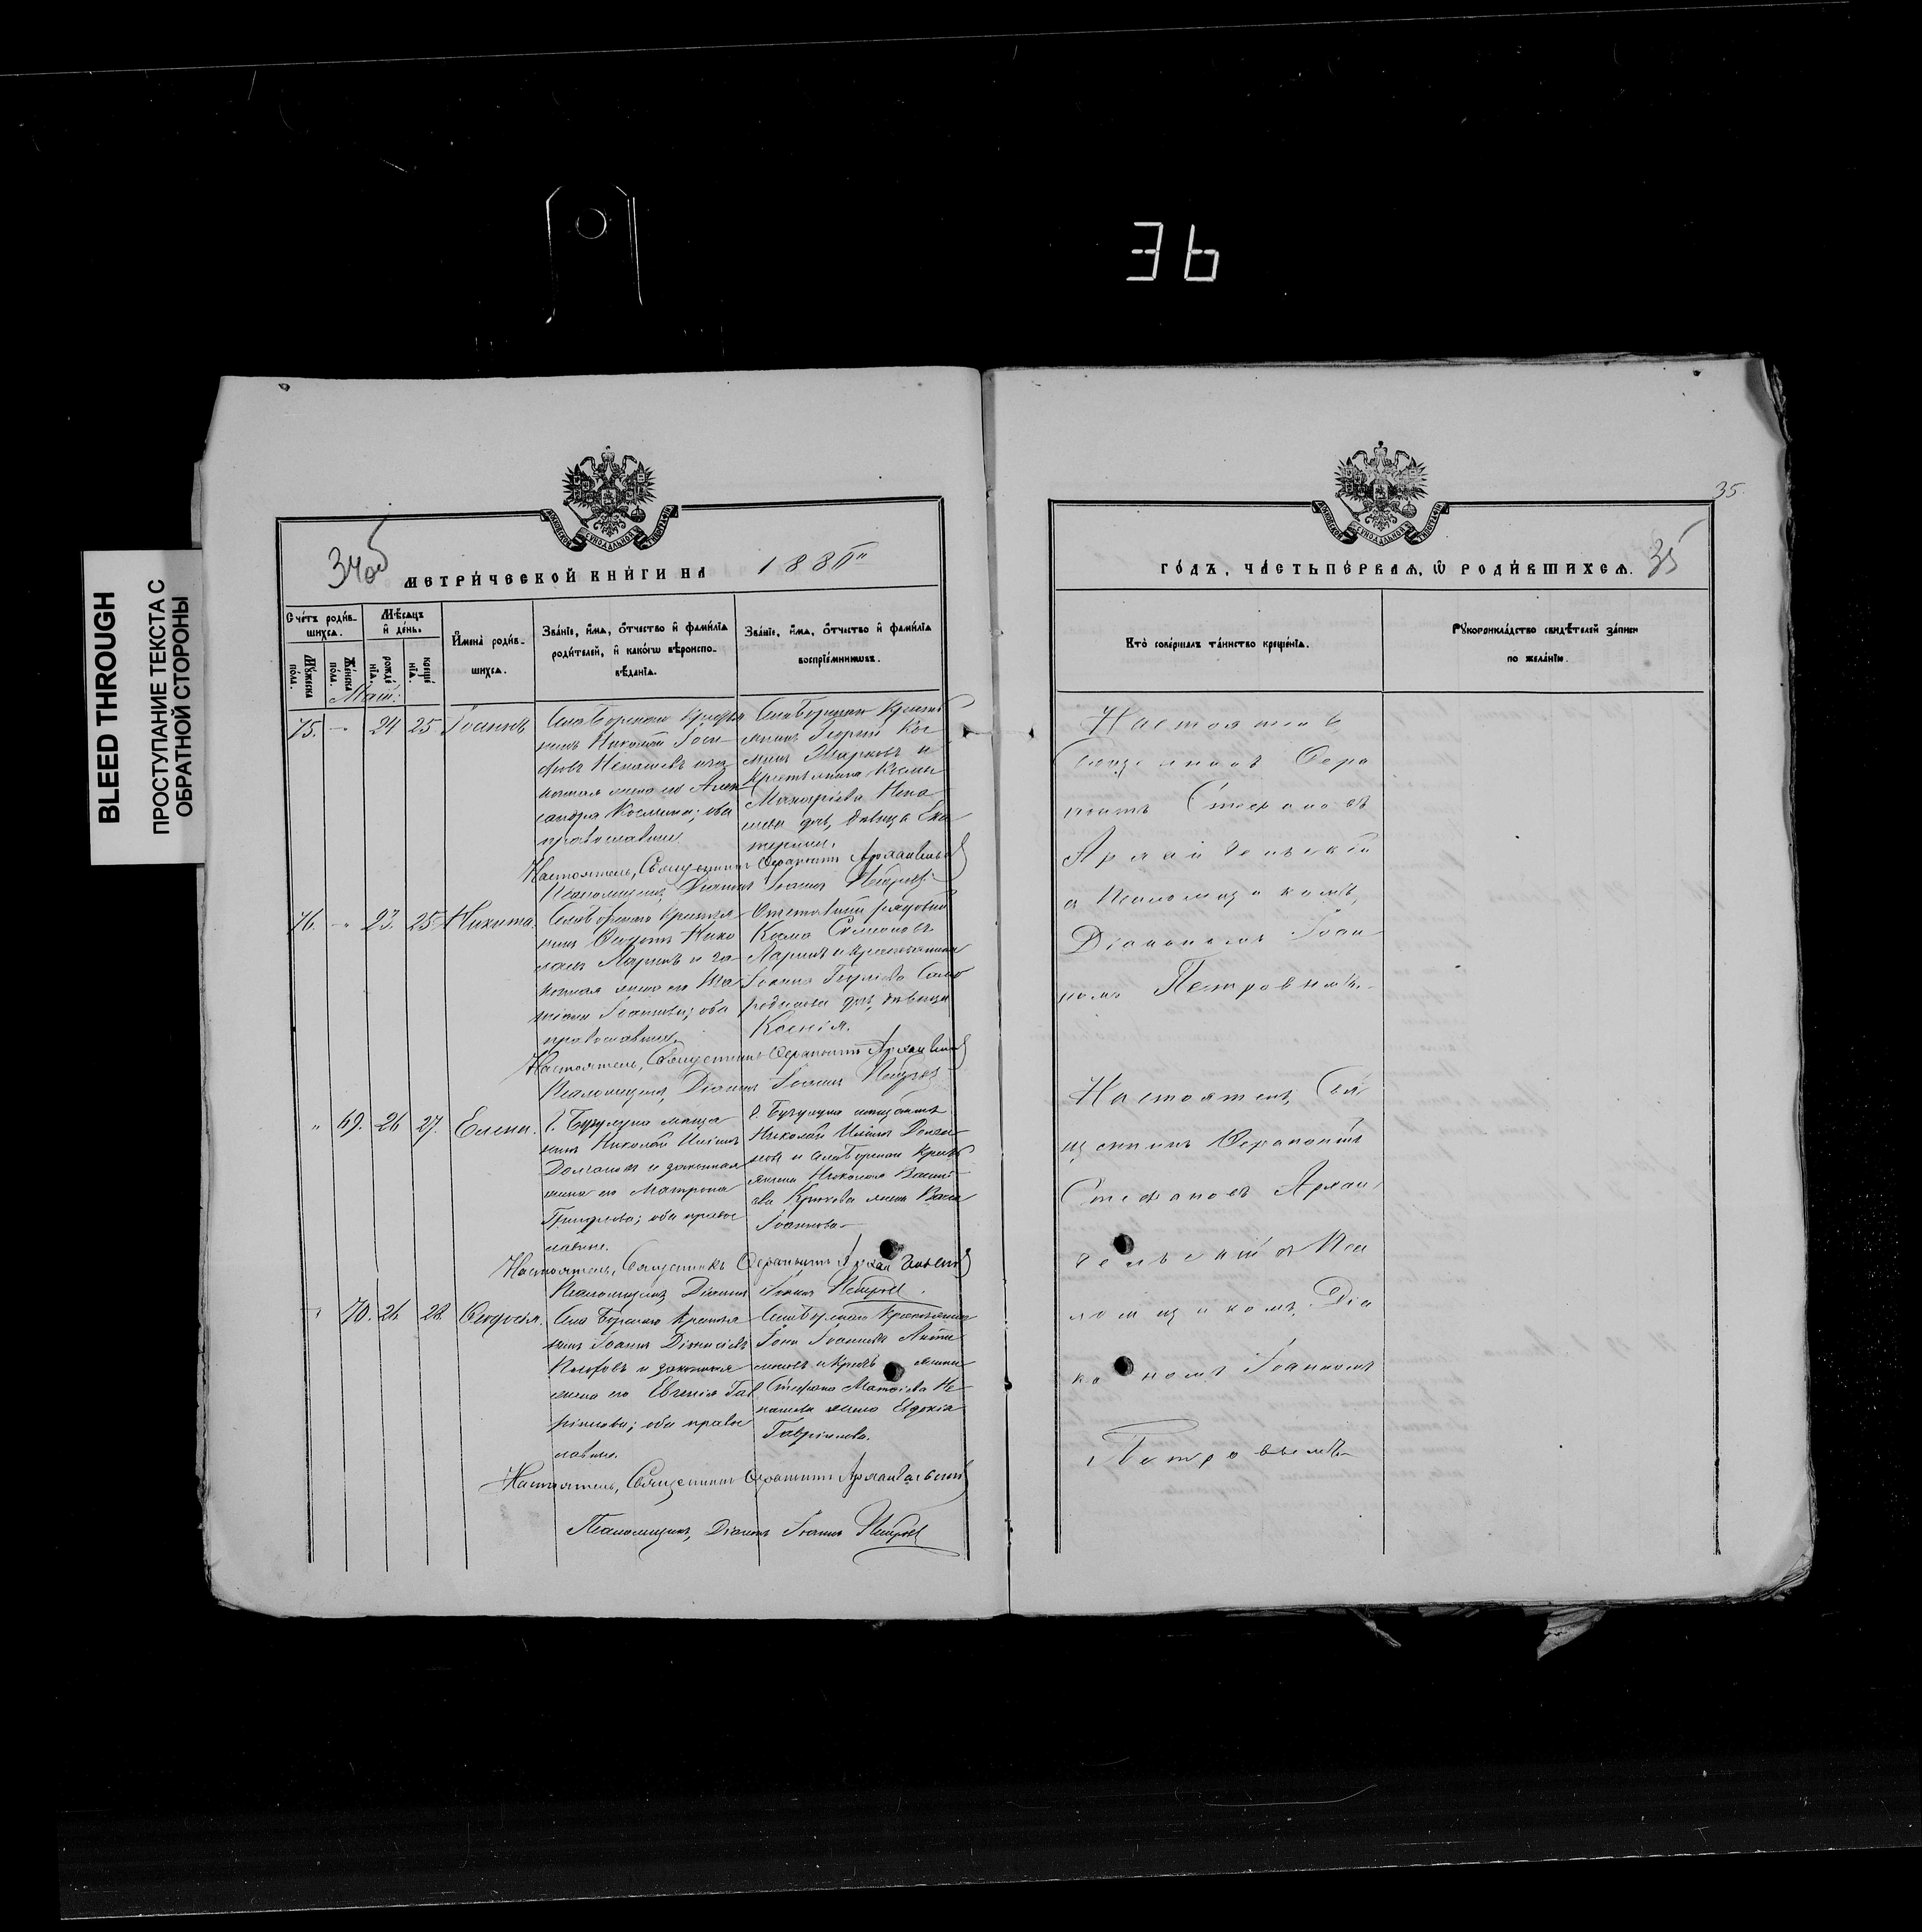 36
BLEED THROUGH
ПРОСТУПАНИЕ ТЕКСТА С
ОБРАТНОЙ СТОРОНЫ
34об
МЕТРИ́ЧЕСКОЙ КНИ́ГИ НА 188
Сче́тъ роди́в-
шихсѧ.
Мѣ́сѧцъ
и҆ де́нь.
Мꙋ́жеска
по́ла.
Же́нска
по́ла.
рожде́
нїѧ.
креще́
нїѧ.
И҆мена̀ роди́в-
шихсѧ.
Зва́нїе, и҆́мѧ, ѻ҆́тчество и҆ фами́лїѧ
роди́телей, и҆ како́гѡ вѣроиспо-
вѣ́данїѧ.
Зва́нїе, и҆́мѧ, ѻ҆́тчество и҆ фами́лїѧ
воспрїе́мникѡвъ.
Май.
75. - 24 25
Села Борскаго кресть
нинъ Николай Іоси-
фовъ Ненашевъ и за
конная жена его Алек
сандра Космина; оба
православные
Села Борскаго крест
янинъ Георгій Кос
минъ Марковъ и
крестьянина Космы
Макаріева Нена
шева дочь, девица Ека
терина.
Настоятель, Священникъ Ферапонтъ Архангельскій
Псаломщикъ, Діаконъ Іоаннъ Петровъ
76. - 23. 25 Никита.
Села Борскаго крестья
нинъ Ѳедотъ Нико
лаевъ Ларинъ и за
конная жена его
Іоаннова; оба
православные.
Отставной рядовой
Косма Симеоновъ
Ларинъ и крестьянина
Іоанна Георгіева Само
дочь, девица
Ксенія.
Настоятель, Священникъ Ферапонтъ Архангельскій
Псаломщикъ, Діаконъ Іоаннъ Петровъ
" 69. 26 27. Елена.
г. Бузулука меща
нинъ Николай Иліинъ
Долговъ и законная
жена его Матрона
Григорьева; оба правос
лавные.
г. Бузулука мещанинъ
Николай Иліинъ
и села Борскаго крест
янина Николая Васильева
Крюкова жена
Іоаннова
Настоятель, Священникъ Ферапонтъ Архангельскій
Псаломщикъ Діаконъ Іоаннъ Петровъ.
" 70. 26. 28. Ѳеодосія.
Села Борскаго крестья
нинъ Іоаннъ Діонисіевъ
и законная
жена его Евгенія Гав
ріилова; оба правос
лавные.
Села Борскаго крестьянинъ
Іона Іоанновъ
и крест янина
Стефана Матвіева Не
нашева жена Евдокія
Гавріилова.
Настоятель, Священникъ Ферапонтъ Архангельскій
Псаломщикъ, Діаконъ Іоаннъ Петровъ
35.
35
ГО́ДЪ, ЧА́СТЬ ПЕ́РВАѦ, Ѡ҆ РОДИ́ВШИХСѦ.
Кто̀ соверша́лъ та́инство креще́нїѧ.
Рꙋкоприкла́дство свидѣ́телей за́писи
по жела́нїю.
Настоятель
Священникъ Фера
понтъ Стефановъ
Архангельскій
съ Псаломщикомъ,
Діакономъ Іоан
номъ Петровымъ.
Настоятель, Свя
щенникъ Ферапонтъ
Стефановъ Архан
гельскій съ Пса
ломщикомъ, Діа
кономъ Іоанномъ
Петровымъ